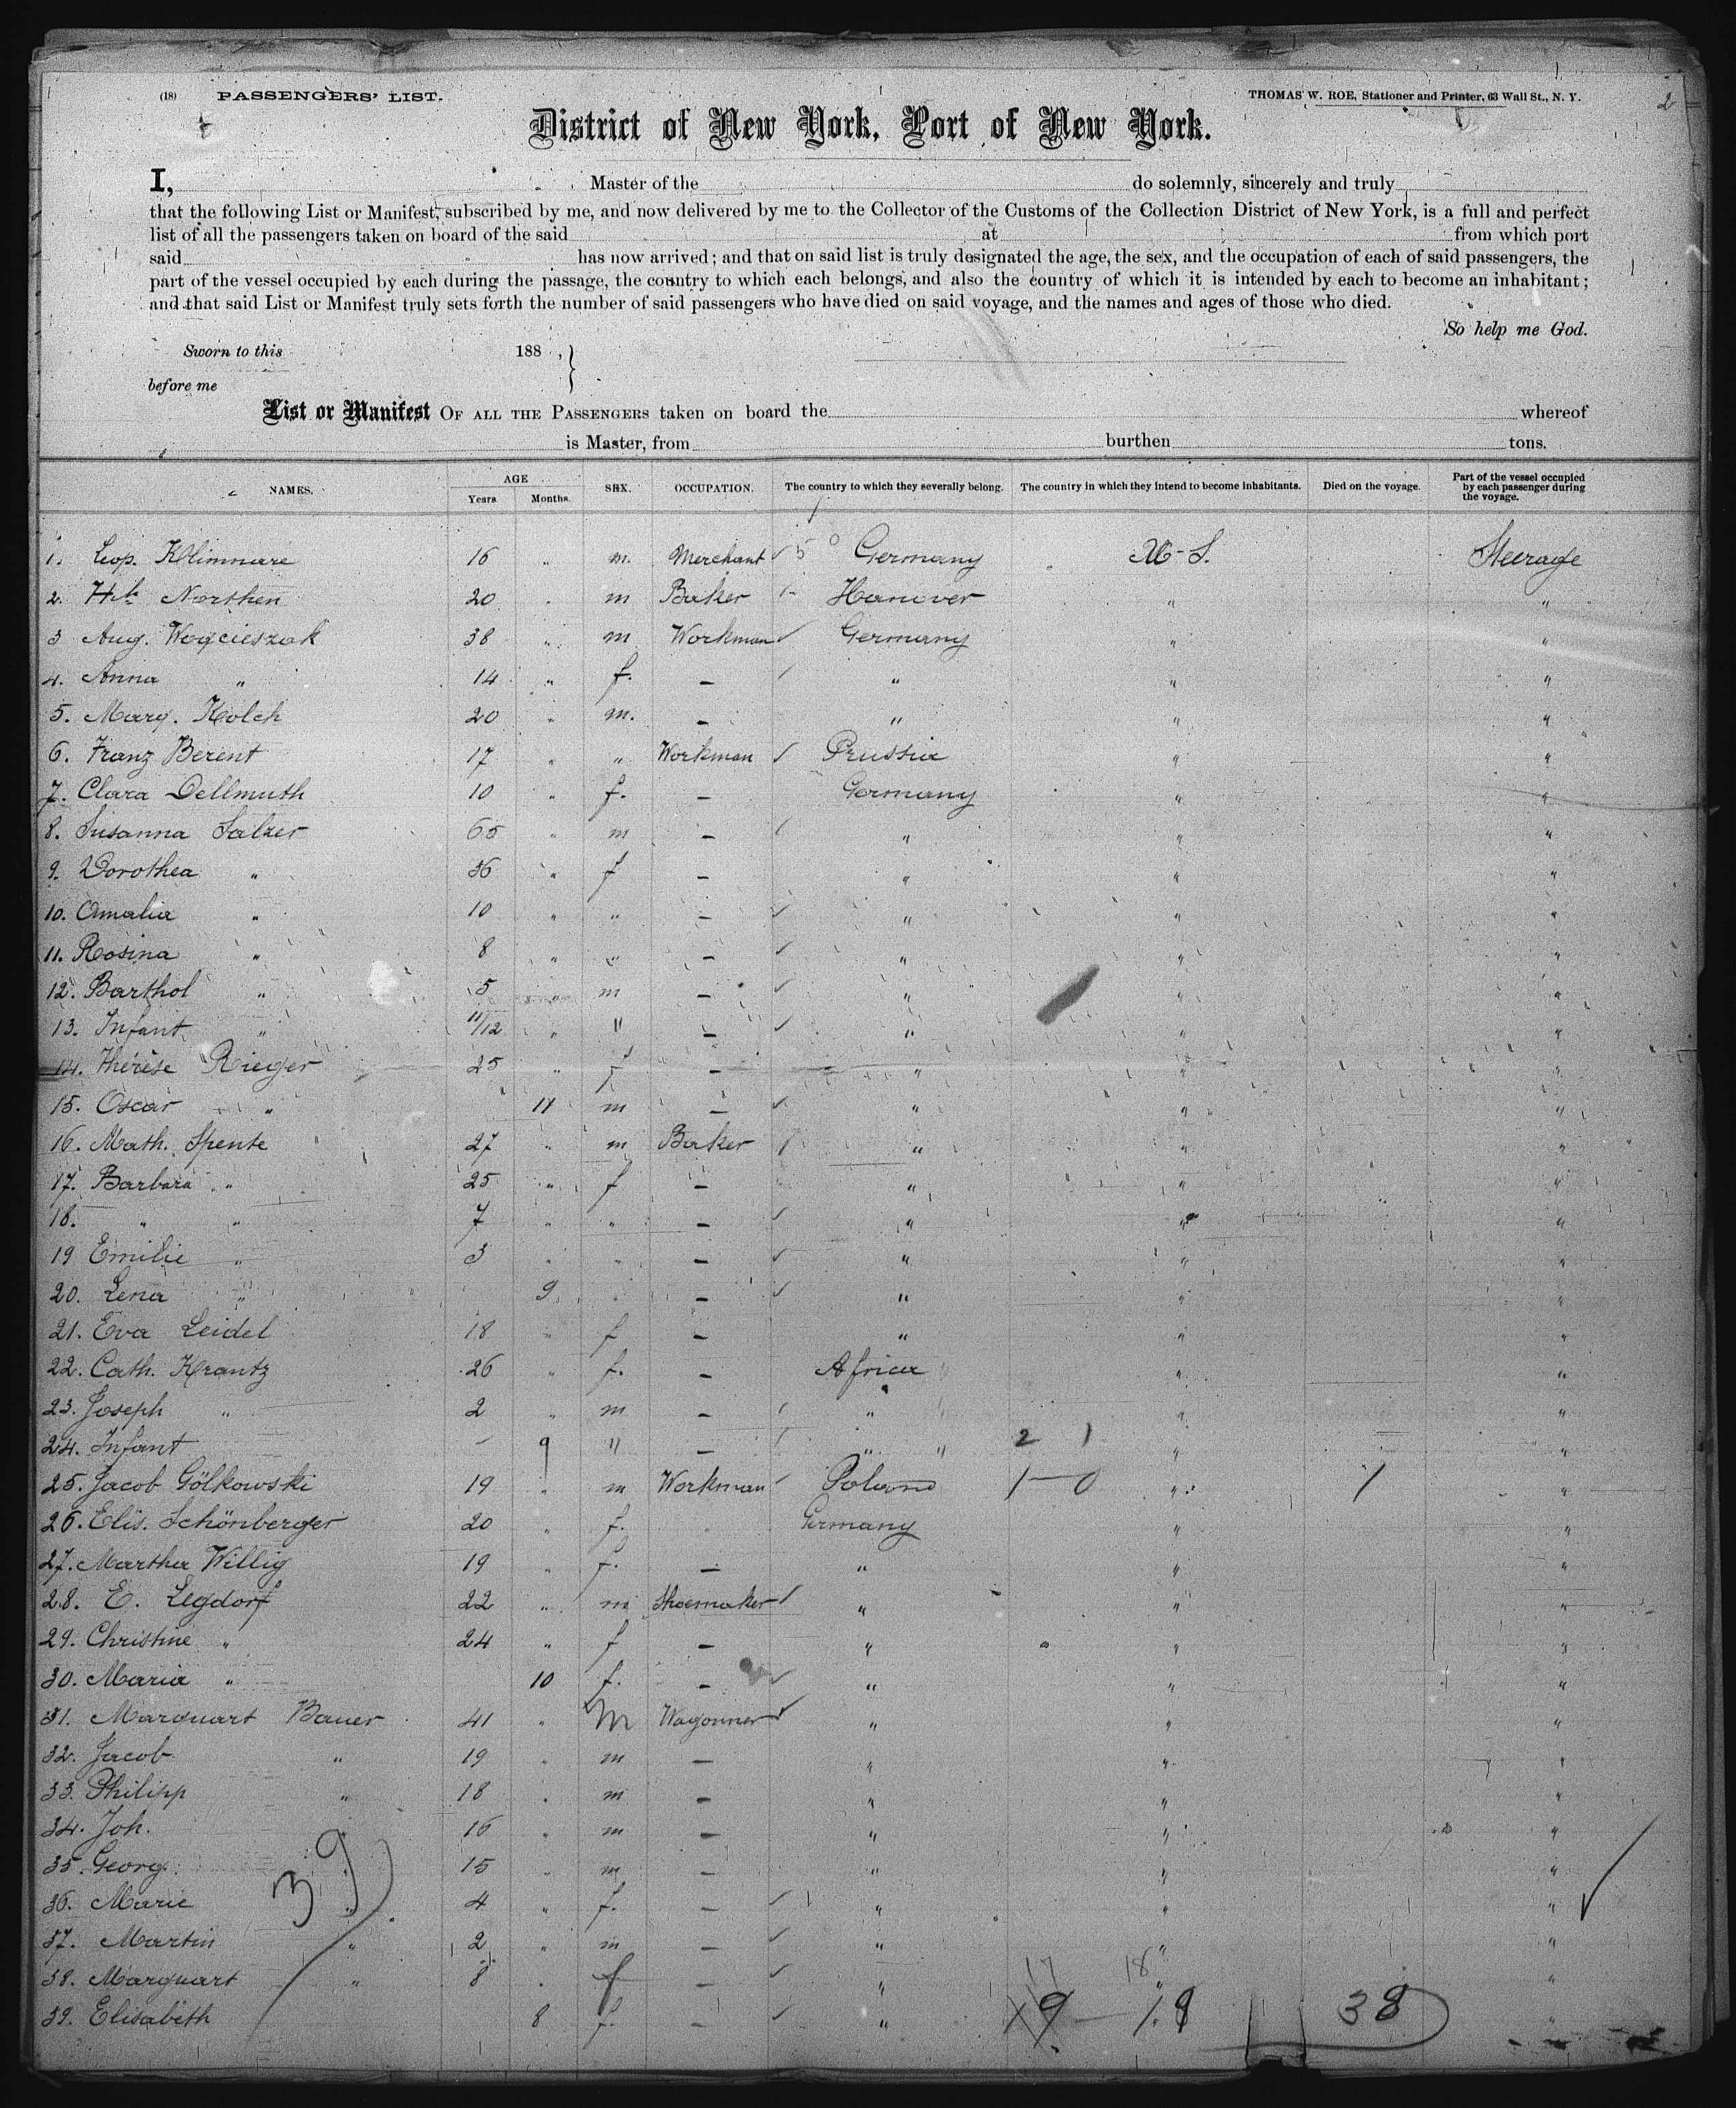 (18) PASSENGERS' LIST. THOMAS W. ROE, Stationer and Printer, 63 Wall St., N. Y. 2
District of New York, Port of New York.
I, Master of the do solemnly, sincerely and truly
that the following List or Manifest, subscribed by me, and now delivered by me to the Collector of the Customs of the Collection District of New York, is a full and perfect
list of all the passengers taken on board of the said at from which port
said has now arrived; and that on said list is truly designated the age, the sex, and the occupation of each of said passengers, the
part of the vessel occupied by each during the passage, the country to which each belongs, and also the country of which it is intended by each to become an inhabitant;
and that said List or Manifest truly sets forth the number of said passengers who have died on said voyage, and the names and ages of those who died.
So help me God.
Sworn to this 188 , }
before me
List or Manifest OF ALL THE PASSENGERS taken on board the whereof
is Master, from burthen tons.
NAMES. AGE Years. Months. SEX. OCCUPATION. The country to which they severally belong. The country in which they intend to become inhabitants. Died on the voyage. Part of the vessel occupied by each passenger during the voyage.
1. Leop. Klimmare 16 " m. Merchant Germany U-S. Steerage
2. Hh Northen 20 " m Baker Hanover " "
3 Aug. Woycieszak 38 " m Workman Germany " "
4. Anna " 14 " f. – " " "
5. Marg. Kolch 20 " m. – " " "
6. Franz Berent 17 " " Workman Prussia " "
7. Clara Dellmuth 10 " f. – Germany " "
8. Susanna Salzer 65 " m – " " "
9. Dorothea " 36 " f – " " "
10. Amalia " 10 " " – " " "
11. Rosina " 8 " " – " " "
12. Barthol " 5 " m – " " "
13. Infant " 11/12 " " – " " "
14. Therese Rieger 25 " f – " " "
15. Oscar " 11 m – " " "
16. Math. Spente 27 " m Baker " " "
17. Barbara " 25 " f – " " "
18. " " 7 " " – " " "
19 Emilie " 3 " " – " " "
20. Lena " 9 " – " " "
21. Eva Leidel 18 " f – " " "
22. Cath. Krantz 26 " f. – Africa " "
23. Joseph " 2 " m – " " "
24. Infant – 9 " – " " 2 1 " "
25. Jacob Gölkowski 19 " m Workman Poland 1–0 " 1 "
26. Elis. Schönberger 20 " f. " Germany " "
27. Martha Willig 19 " f. – " " "
28. E. Legdorf 22 " m Shoemaker " " "
29. Christine " 24 " f – " " "
30. Maria " 10 f. – " " "
31. Marquart Bauer 41 " M Wagonner " " "
32. Jacob " 19 " m – " " "
33. Philipp " 18 " m – " " "
34. Joh. " 16 " m – " " "
35. Georg. " 15 " m – " " "
36. Marie " 4 " f. – " " "
37. Martin " 2 " m – " " "
38. Marquart " 8 " f – " " "
39. Elisabeth 8 f. – " "
39
17 18
19 – 19 38